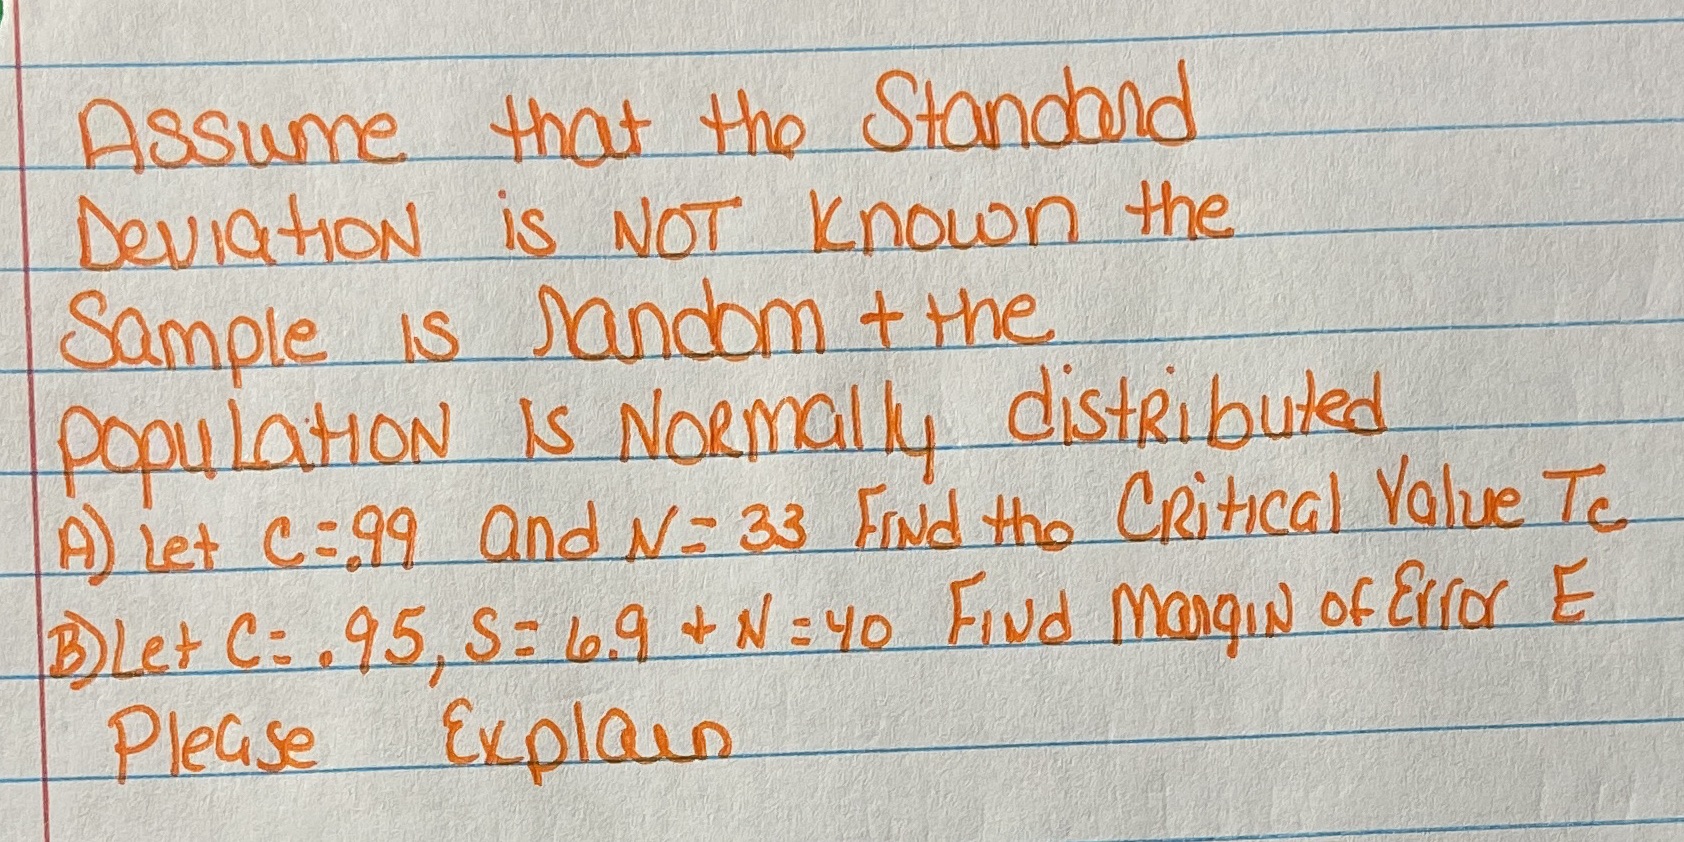 Assume that the Standard
Deviation is NOT Known the
Sample is random + the
population is Normally distributed
A) Let C=.99 and N= 33 Find the Critical Value Tc
B) Let C= .95, S= 6.9 + N=40 Find Margin of Error E
Please Explain